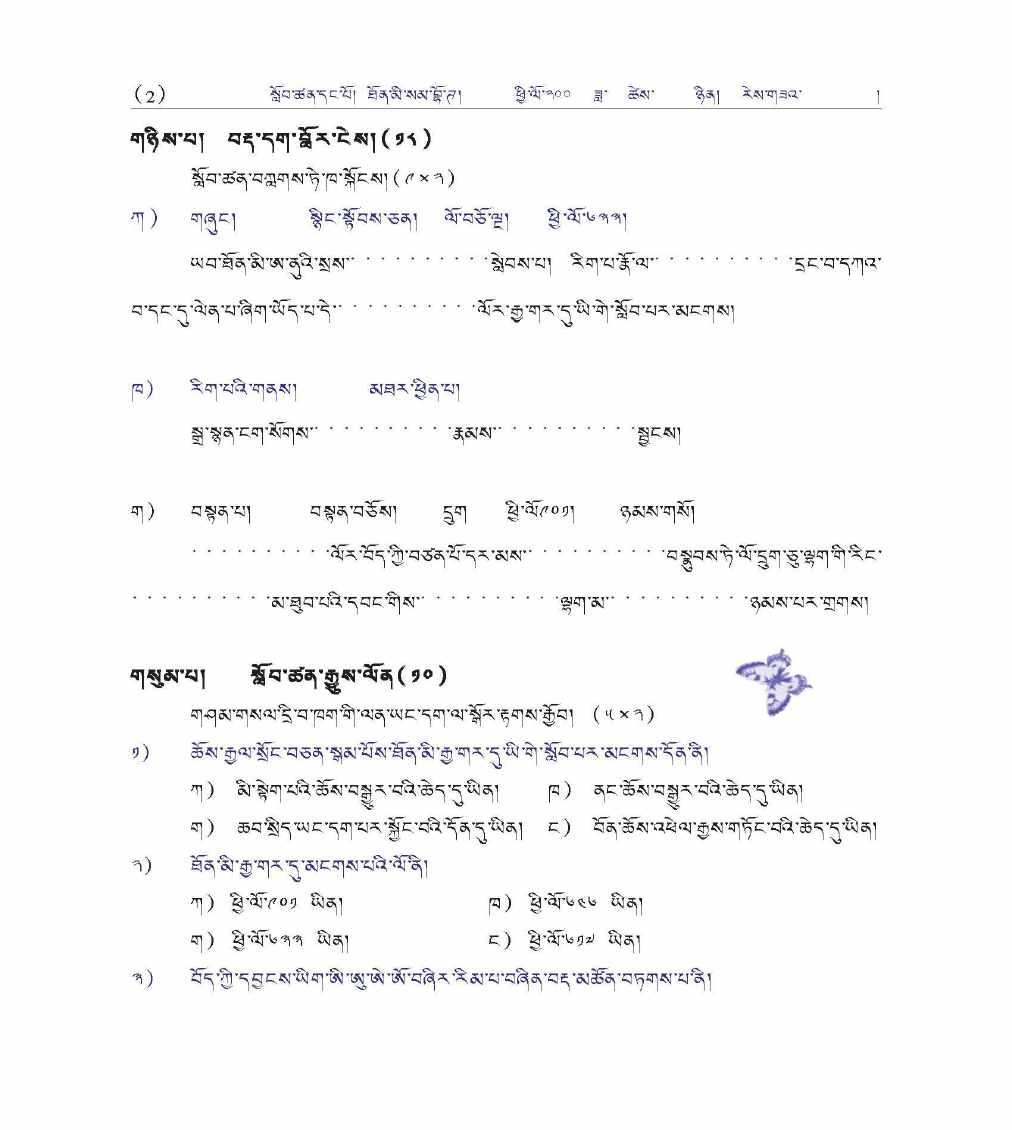 (2) སློབ་ཚན་དང་པོ། ཐོན་མི་སམ་བྷོ་ཊ། ཕྱི་ལོ་༢༠༠ ཟླ་ ཚེས་ ཉིན། རེས་གཟའ་ །
གཉིས་པ། བརྡ་དག་བློར་ངེས། (༡༨)
སློབ་ཚན་བཀླགས་ཏེ་ཁ་སྐོངས། (༩×༢)
ཀ) གཞུང། སྙིང་སྟོབས་ཅན། ལོ་བཅོ་ལྔ། ཕྱི་ལོ་༦༣༣།
ཡབ་ཐོན་མི་ཨ་ནུའི་སྲས་ · · · · · · · · · ·སླེབས་པ། རིག་པ་རྩོལ་ · · · · · · · · · ·དྲང་བ་དཀའ་
བ་དང་དུ་ལེན་པ་ཞིག་ཡོད་པ་དེ་ · · · · · · · · · ·ལོར་རྒྱ་གར་དུ་ཡི་གེ་སློབ་པར་མངགས།
ཁ) རིག་པའི་གནས། མཐར་ཕྱིན་པ།
སྒྲ་སྙན་ངག་སོགས་ · · · · · · · · · ·རྣམས་ · · · · · · · · · ·སྦྱངས།
ག) བསྟན་པ། བསྟན་བཅོས། དྲུག ཕྱི་ལོ༩༠༡། ཉམས་གསོ།
· · · · · · · · · ·ལོར་བོད་ཀྱི་བཙན་པོ་དར་མས་ · · · · · · · · · ·བསྣུབས་ཏེ་ལོ་དྲུག་ཅུ་ལྷག་གི་རིང་
· · · · · · · · · ·མ་ཐུབ་པའི་དབང་གིས་ · · · · · · · · · ·ལྷག་མ་ · · · · · · · · · ·ཉམས་པར་གྲགས།
གསུམ་པ། སློབ་ཚན་རྒྱུས་ལོན (༡༠)
གཤམ་གསལ་དྲི་བ་ཁག་གི་ལན་ཡང་དག་ལ་སྒོར་རྟགས་རྒྱོབ། (༥×༢)
༡) ཆོས་རྒྱལ་སྲོང་བཅན་སྒམ་པོས་ཐོན་མི་རྒྱ་གར་དུ་ཡི་གེ་སློབ་པར་མངགས་དོན་ནི།
ཀ) མི་སྟེག་པའི་ཆོས་བསྒྱུར་བའི་ཆེད་དུ་ཡིན། ཁ) ནང་ཆོས་བསྒྱུར་བའི་ཆེད་དུ་ཡིན།
ག) ཆབ་སྲིད་ཡང་དག་པར་སྐྱོང་བའི་དོན་དུ་ཡིན། ང) བོན་ཆོས་འཕེལ་རྒྱས་གཏོང་བའི་ཆེད་དུ་ཡིན།
༢) ཐོན་མི་རྒྱ་གར་དུ་མངགས་པའི་ལོ་ནི།
ཀ) ཕྱི་ལོ་༩༠༡ ཡིན། ཁ) ཕྱི་ལོ་༦༤༦ ཡིན།
ག) ཕྱི་ལོ་༦༣༣ ཡིན། ང) ཕྱི་ལོ་༦༡༧ ཡིན།
༣) བོད་ཀྱི་དབྱངས་ཡིག་ཨི་ཨུ་ཨེ་ཨོ་བཞིར་རིམ་པ་བཞིན་བརྡ་མཚོན་བཏགས་པ་ནི།